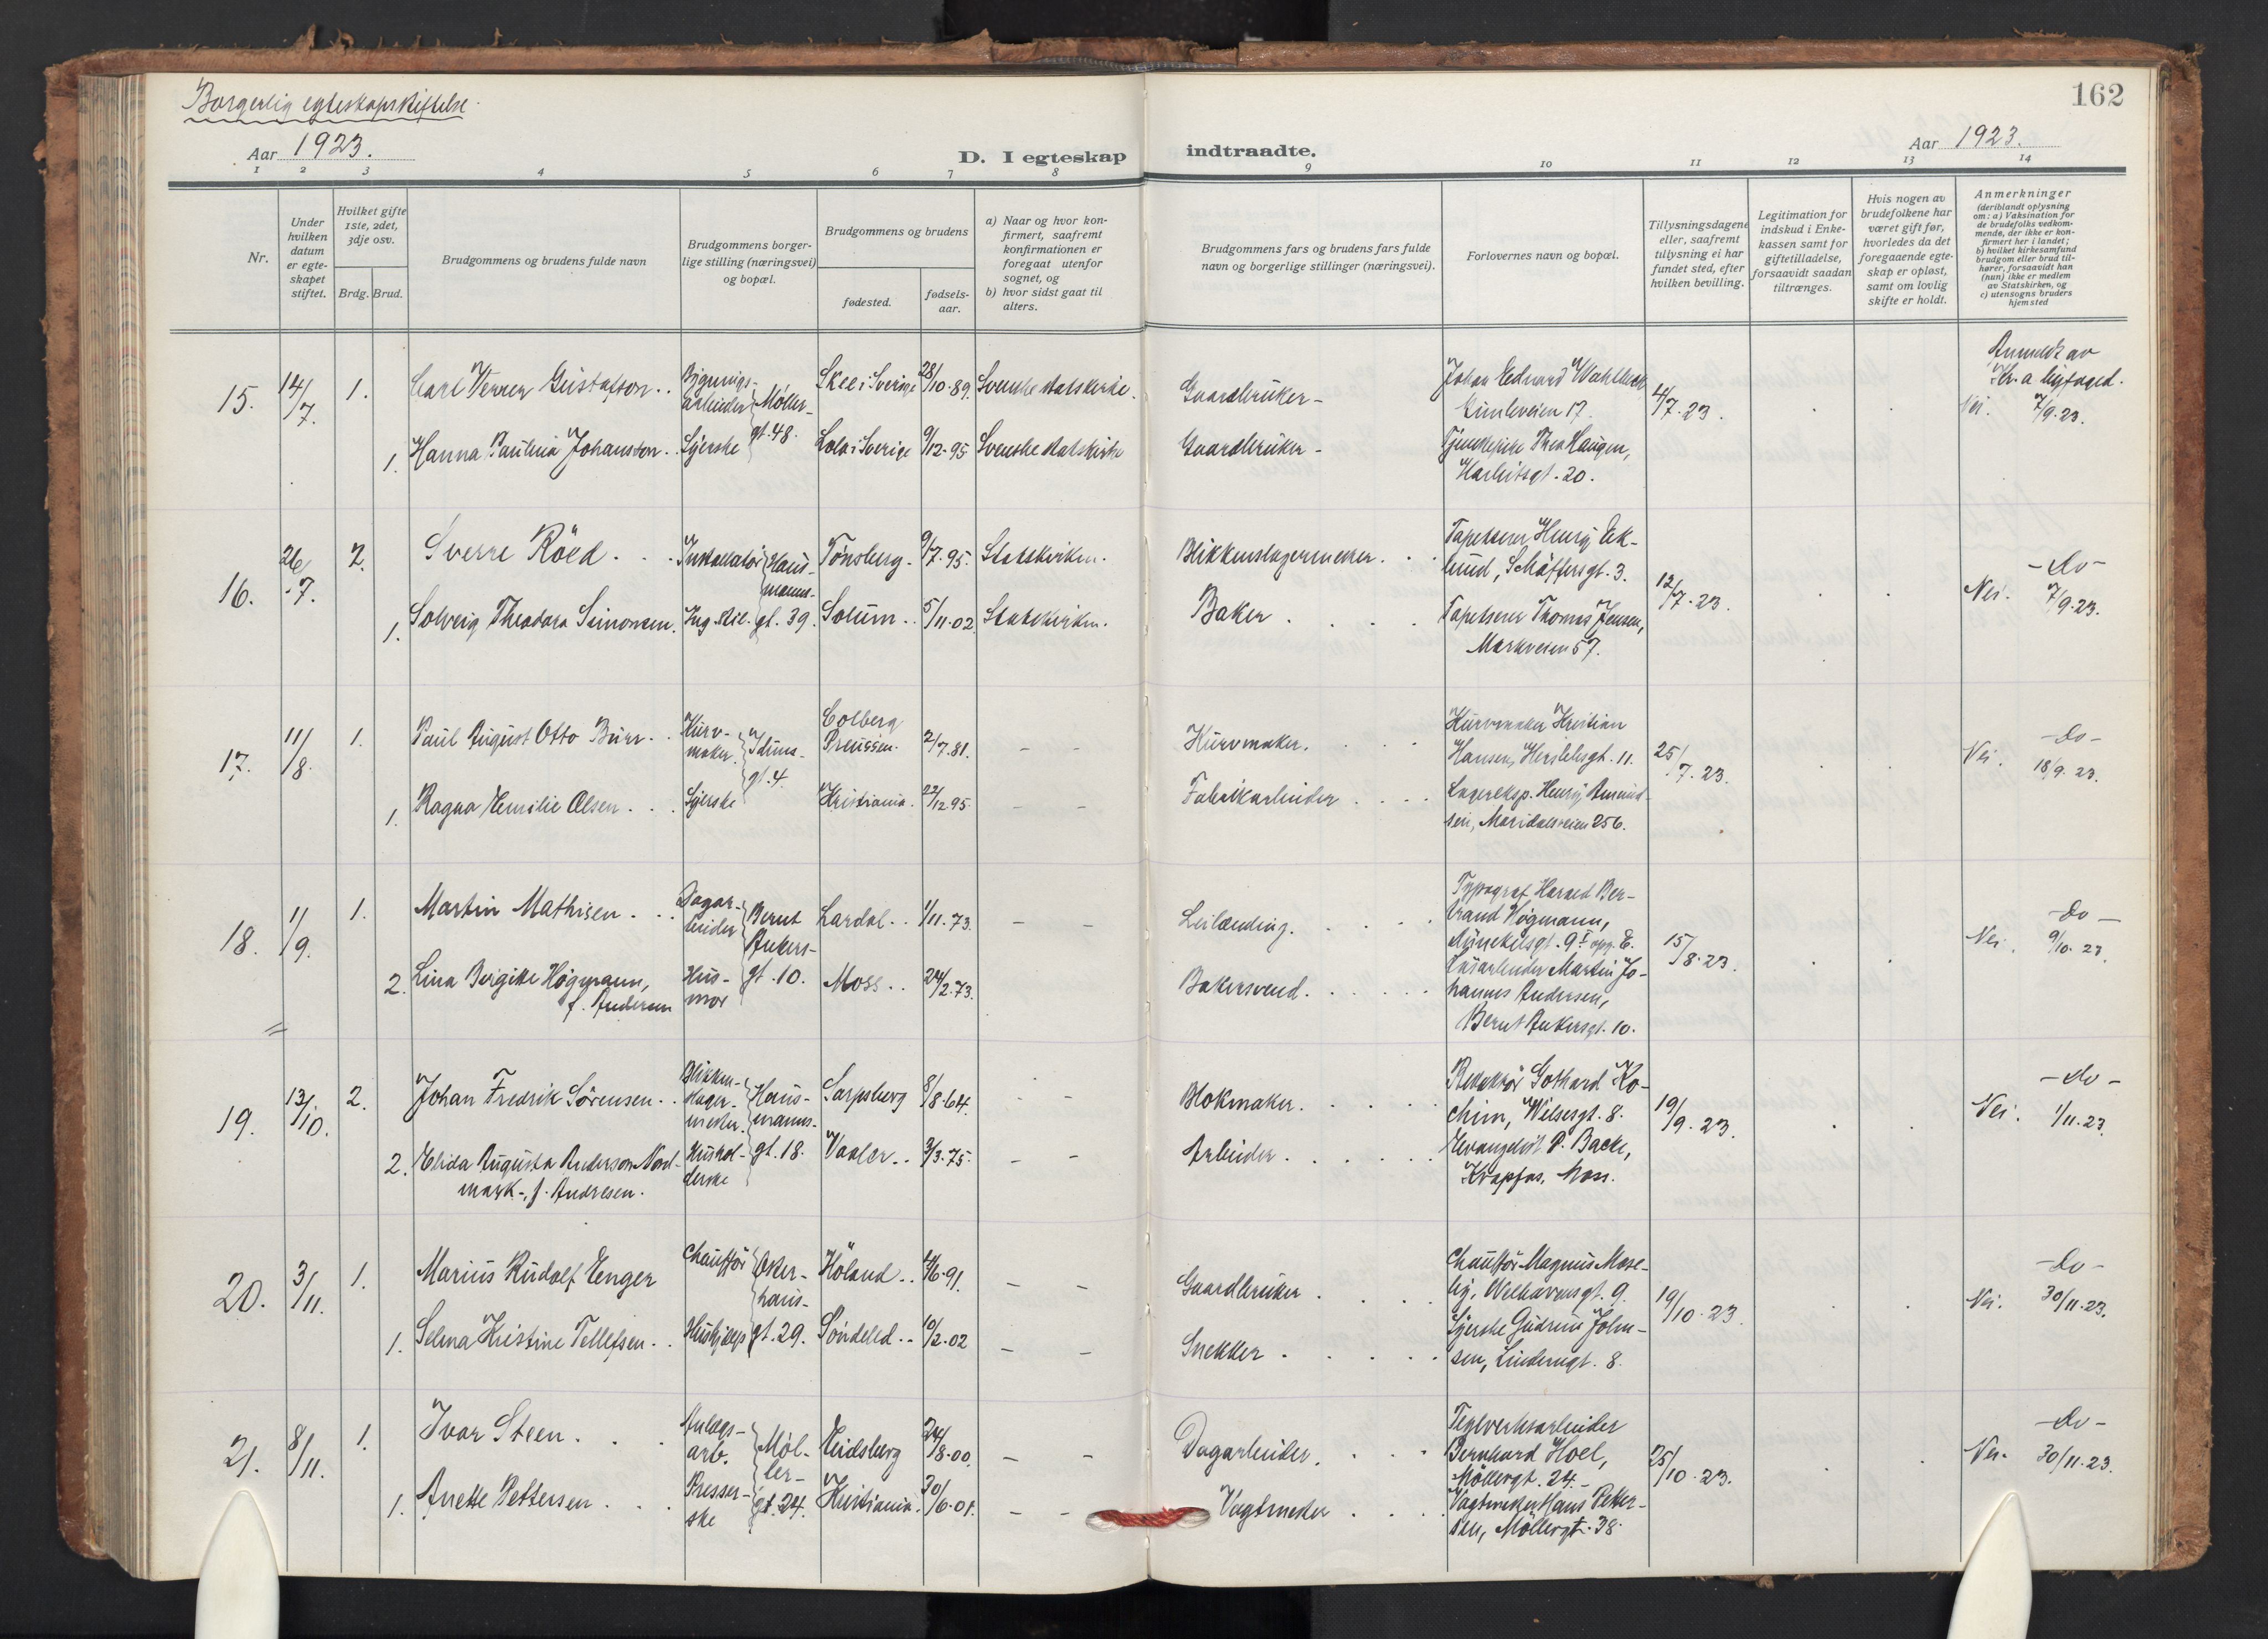 Borgerlig egteskapsstiftelse.
162
Aar 1923.
D. I egteskap indtraadte.
Aar 1923.
1 2 3 4 5 6 7 8 9 10 11 12 13 14
Nr.
Under hvilken datum er egteskapet stiftet.
Hvilket gifte 1ste, 2det, 3dje osv.
Brdg. Brud.
Brudgommens og brudens fulde navn
Brudgommens borgerlige stilling (næringsvei) og bopæl.
Brudgommens og brudens
fødested.
fødselsaar.
a) Naar og hvor konfirmert, saafremt konfirmationen er foregaat utenfor sognet, og
b) hvor sidst gaat til alters.
Brudgommens fars og brudens fars fulde navn og borgerlige stillinger (næringsvei).
Forlovernes navn og bopæl.
Tillysningsdagene eller, saafremt tillysning ei har fundet sted, efter hvilken bevilling.
Legitimation for indskud i Enkekassen samt for giftetilladelse, forsaavidt saadan tiltrænges.
Hvis nogen av brudefolkene har været gift før, hvorledes da det foregaaende egteskap er opløst, samt om lovlig skifte er holdt.
Anmerkninger (deriblandt oplysning om: a) Vaksination for de brudefolks vedkommende, der ikke er konfirmert her i landet; b) hvilket kirkesamfund brudgom eller brud tilhører, forsaavidt han (hun) ikke er medlem av Statskirken, og c) utensogns bruders hjemsted
15. 14/7. 1. Carl Verner Gustafson . . Bygnings-arbeider Møller-gt. 48. Skee i Sverige 28/10.89. Svenske statskirke. Gaardbruker - Johan Edvard Wahlbeck 4/7.23. Nei. Anmeldt av Kr.a byfoged. 7/9.23.
1. Hanna Paulina Johansson . . Syerske Sverige 9/12.95 Svenske statskirke Gaardbruker - Tjenestepike Thea Haugen, Harbitzgt. 20.
16. 26/7. 2. Sverre Röed . . . Installatör Haus-manns-gt. 39. Tönsberg. 9/7.95. Statskirken. Blikkenslagermester. . Tapetserer Henry Ek-lund, Schäffersgt. 3. 12/7.23. Nei. -do- 7/9.23.
1. Solveig Theodora Simonsen. Solum . . 5/11.02 Statskirken. Baker . . . . Tapetserer Thomas Jensen, Markveien 57.
17. 11/8. 1. Paul August Otto Burr . . Kurv-maker. Iduns-gt. 4. Colberg Preussen. 2/7.81. - - Kurvmaker. . . . Kurvmaker Kristian Hansen, Herslebsgt. 11. 25/7.23. Nei. -do- 18/9.23.
1. Ragna Emilie Olsen . . . Syerske Kristiania. 22/12 95. - - Fabrikarbeider . . . . Lagereksp. Henry Amund-sen, Maridalsveien 256.
18. 1/9. 1. Martin Mathisen . . . Dagar-beider Bernt Ankers-gt. 10. Lardal . . 1/11.73. - - Leilænding. . . . . Typograf Harald Ber-trand Høgmann, 15/8.23. Nei. -do- 9/10.23.
2. Lina Birgitte Høgmann, f. Andersen Hus-mor Moss . . 24/2.73. Bakersvend. . . . . . Løsarbeider Martin Jo-hannes Andersen, Bernt Ankersgt. 10.
19. 13/10. 2. Johan Fredrik Sörensen . . Blikken-slager-mester. Haus-manns-gt. 18. Sarpsborg 8/8.64. - - Blokmaker. . . . . Redaktör Gothard Ko-chim, 8. 19/9.23. Nei. -do- 1/11.23.
2. Elida Augusta Anderson Nord-mark -, f. Andresen. Hushol-derske Vaaler . . 3/3.75. - - Arbeider . . . . . Evangelist P. Backe, Krapfos, Moss.
20. 3/11. 1. Marius Rudolf Enger Chauffør Aker-hus-gt. 29. Höland . . 6.91. - - Gaardbruker . . . Chauffør Magnus Mose-by, Welhavensgt. 9. 19/10.23. Nei. -do- 30/11.23.
1. Selma Kristine Tellefsen . . Hushjælp Söndeled . . 10/2.02 - - Snekker . . . . . Syerske Gudrun John-sen, Linderngt. 8.
21. 8/11. 1. Ivar Steen . . . Anlægs-arb. Möl-ler-gt. 24. Eidsberg 24/8.00. - - Dagarbeider. . . . Teglverksarbeider Bernhard Hoel, Möllergt. 24. - 25/10.23. Nei. -do- 30/11.23.
1. Anette Pettersen . . . Presser-ske Kristiania. 30/6.01. - - Vagtmester . . . Vagtmester Hans Petter-sen, Möllergt. 38.